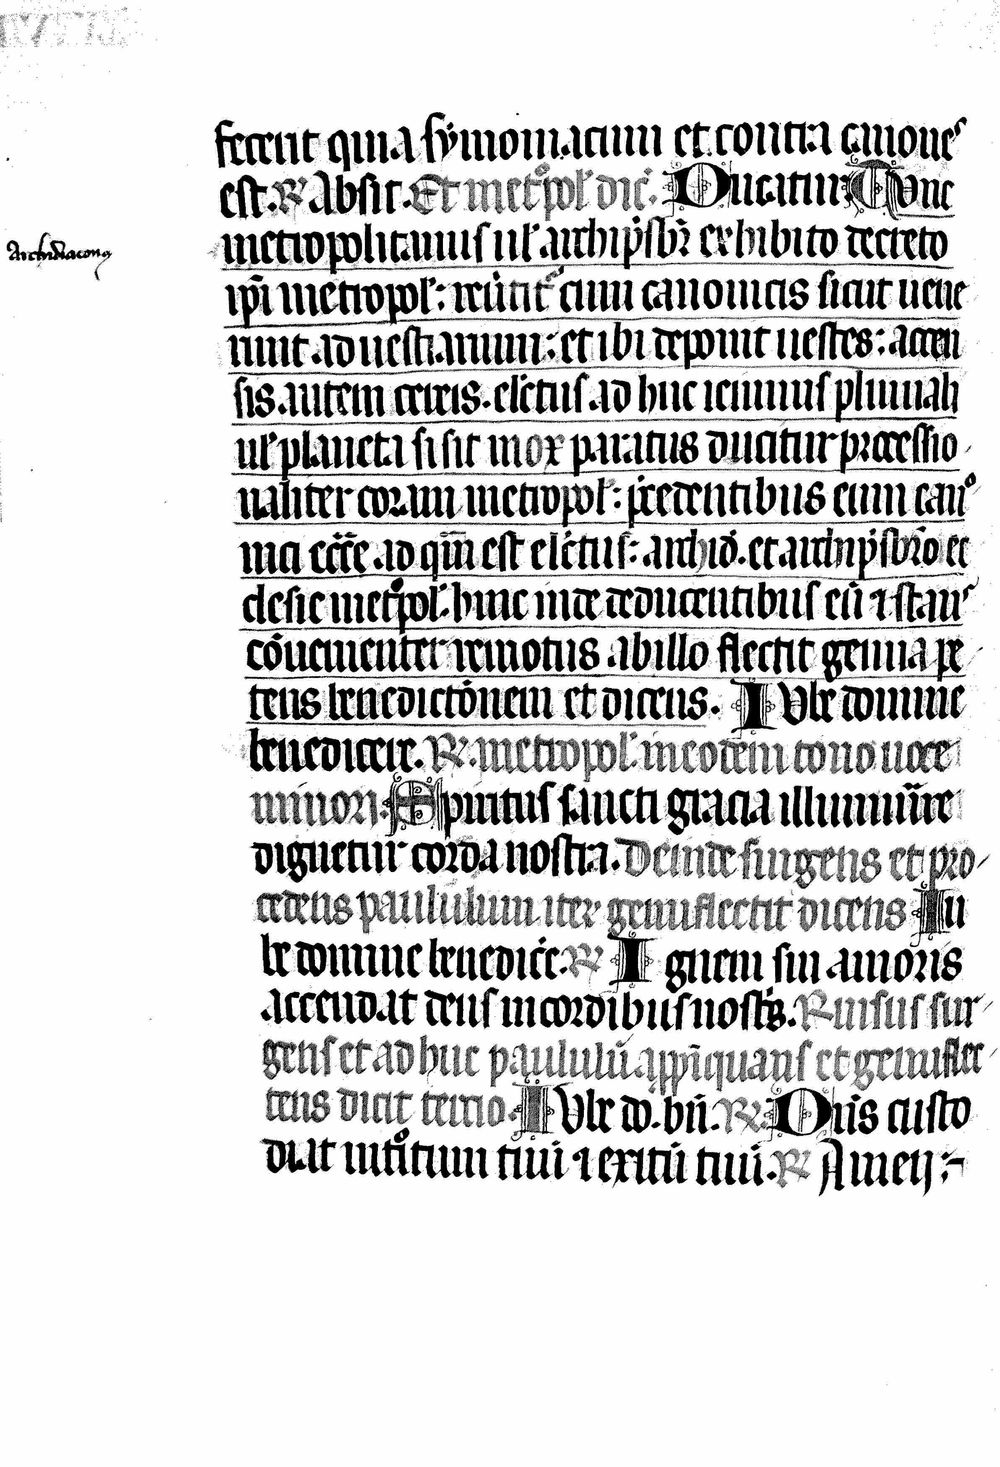 fecerit quia symoniacum et contra canones
est. ℟ Absit. Et met͛pol̛ dic̄. Ducatur Tunc
Archidiaconꝯ
metropolitanus ul̛ archip̄sbr̄ exhibito decreto
ip̄i metropol̛: reu͛tit͛ cum canonicis sicut uene
runt ad uestiarium: et ibi deponit uestes: accen
sis autem cereis. el̄ctus ad huc ieiunus pluuiali
ul̛ planeta si sit mox paratus ducitur processio
naliter coram metropol̛: p̄cedentibus eum cano
nici ecc̄e ad qua̅m est el̄ctus: archid̛. et archip̄sbr̄o ec
clesie met͛pol̛. hinc inde deducentibus eū ⁊ stans
co̅uenienter remotus ab illo flectit genua pe
tens benedicto̅nem et dicens. Iube domne
benedicere. ℟. metropol̛ in eodem tono uoce
minori. Spiritus sancti gracia illumin̄are
dignetur corda nostra. Deinde surgens et pro
cedens paululum iter genuflectit dicens Iu
be domne benedic̄e. ℟ Ignem sui amoris
accendat deus in cordibus nost͛s. Rursus sur
gens et ad huc paululū app̄iquans et genuflec
tens dicit tercio. Iube do. bn̄. ℟ Dn̄s custo
diat int͛oitum tuui ⁊ exitū tuui. ℟ Amen: